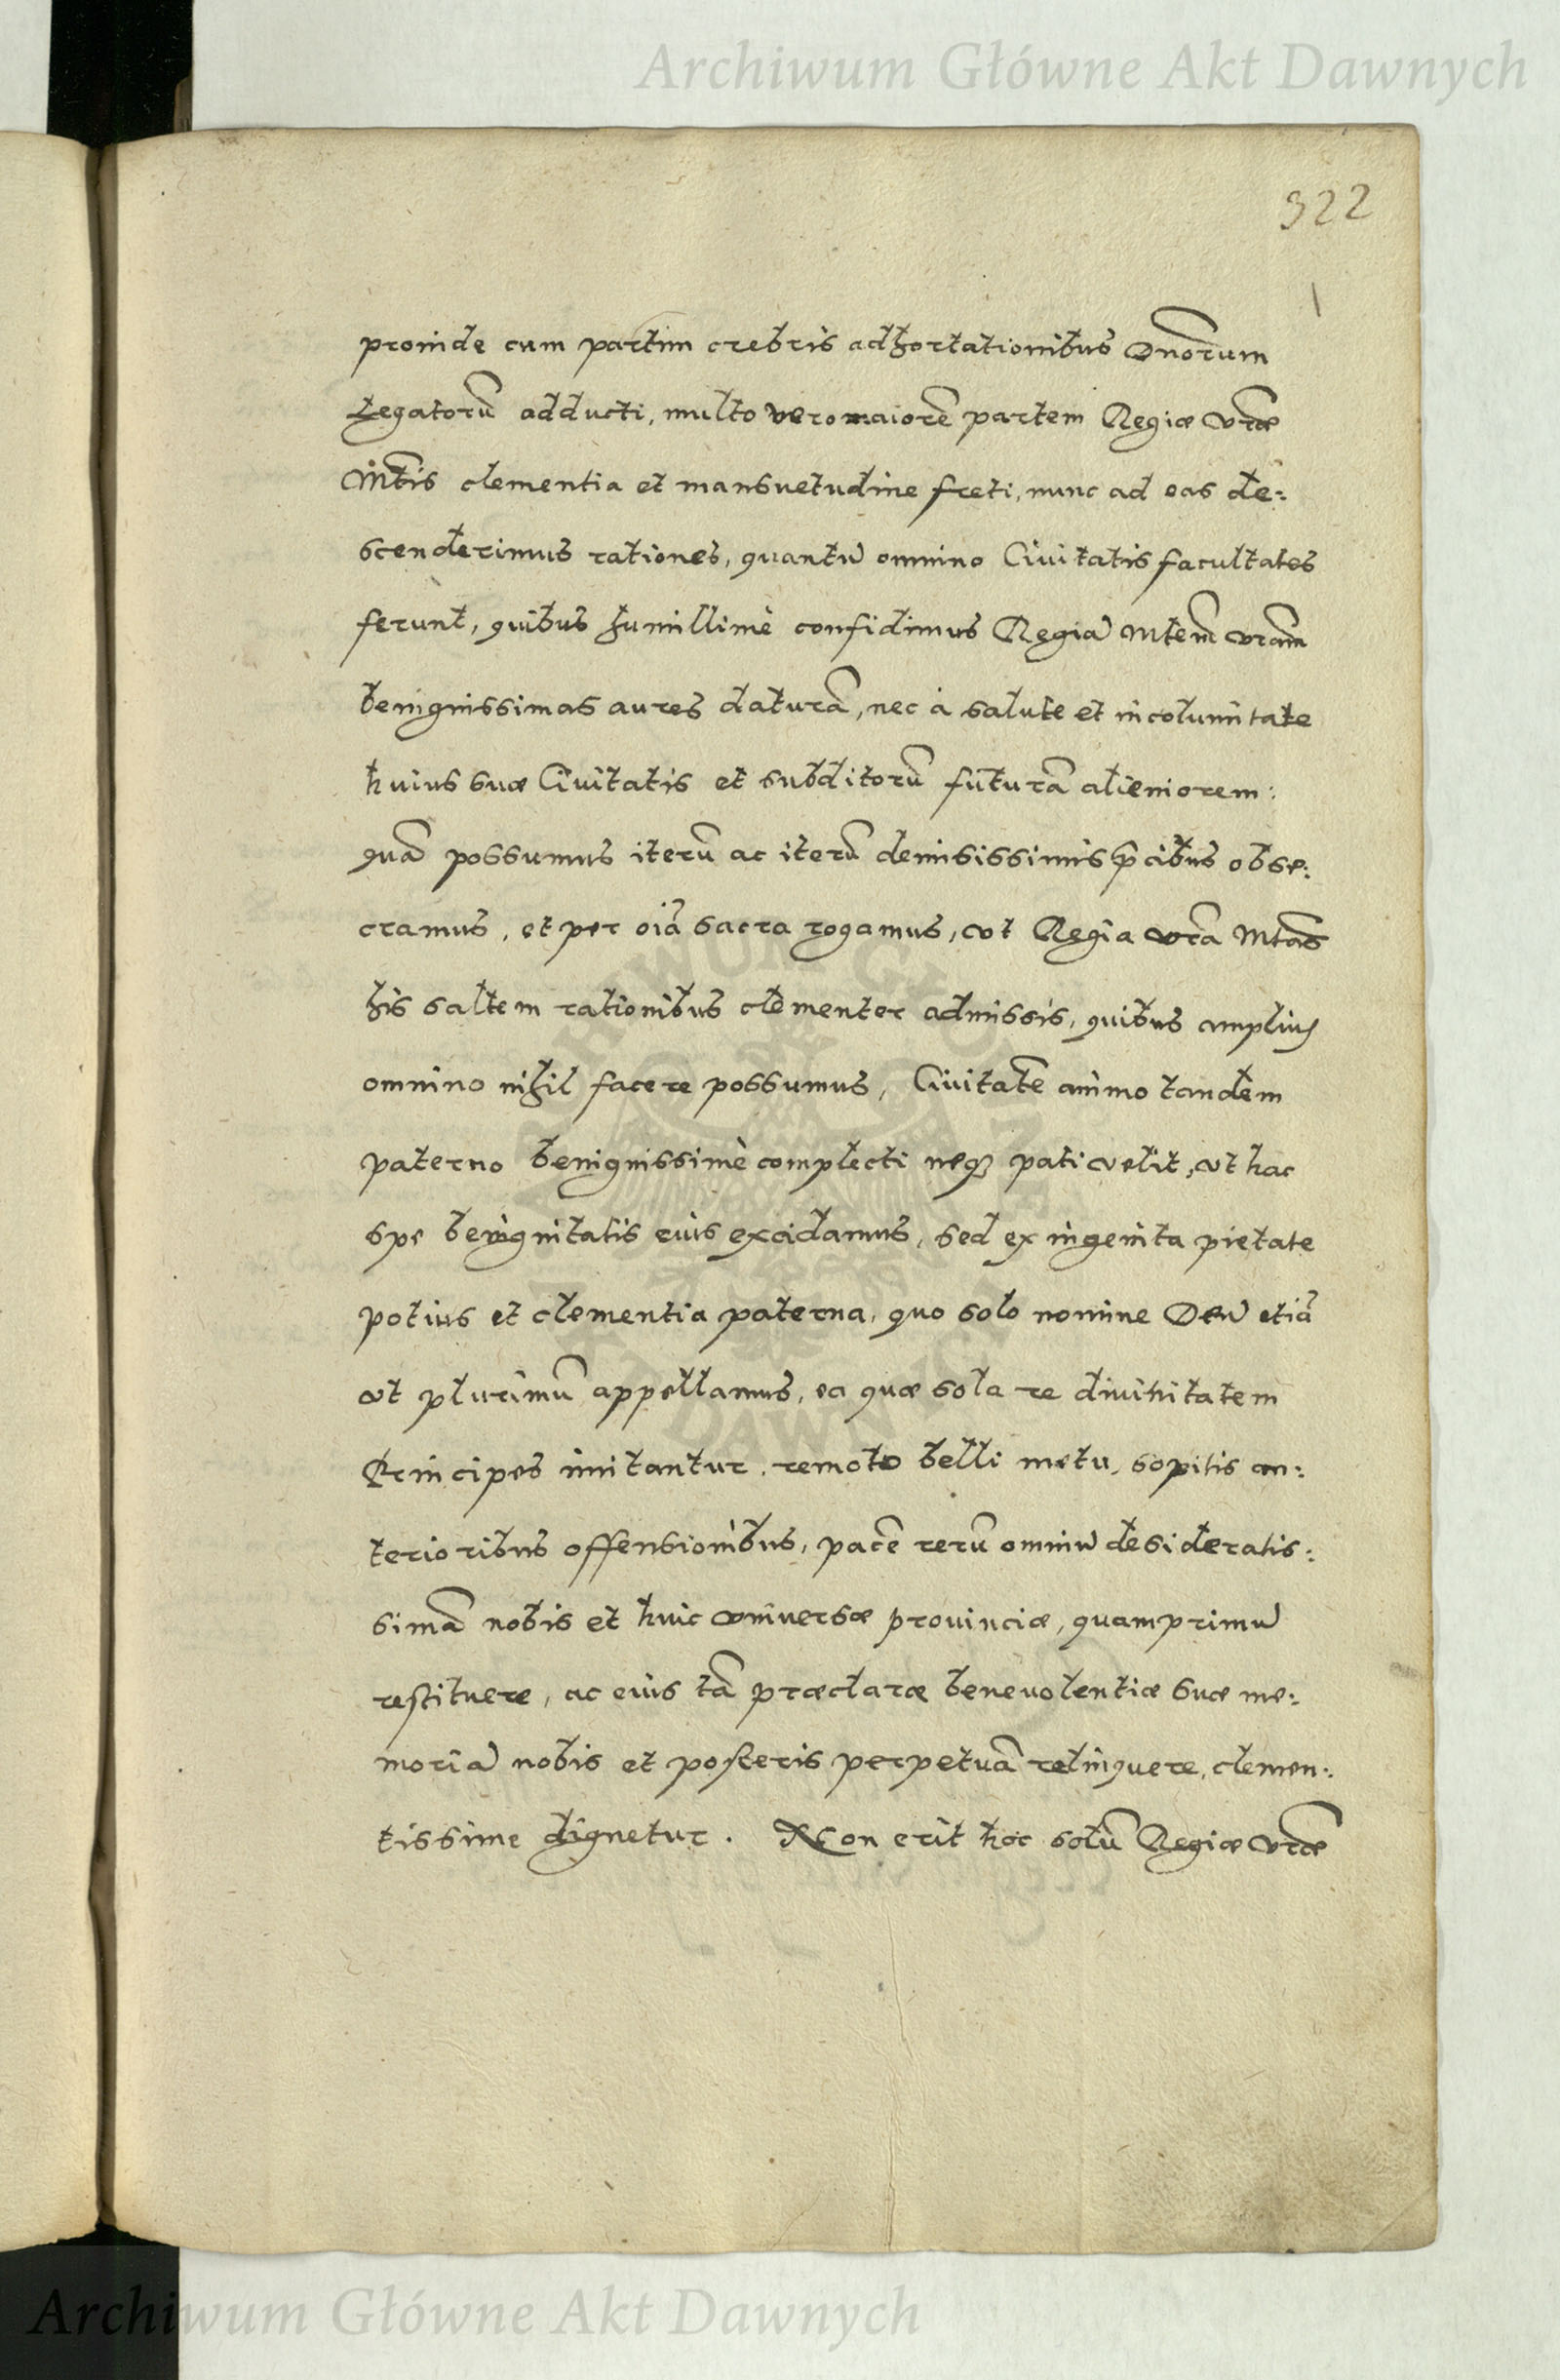 Archiwum Główne Akt Dawnych
322
proinde cum partim crebris adhortationibus Dnõrum
Legatorũ adducti, multo vero maiorẽ partem Regiæ vræ
Mtis clementia et mansuetudine freti, nunc ad eas de:
scenderimus rationes, quantũ omnino Ciuitatis facultates
ferunt, quibus humillimè confidimus Regiã Mtem vram
benignissimas aures daturã, nec à salute et incolumitate
huius suæ Ciuitatis et subditorũ futurã alieniorem:
quã possumus iterũ ac iterũ demississimis p̃cibus obse:
cramus, et per oiã sacra rogamus, vt Regia vra Mtas
his saltem rationibus clementer admissis, quibus amplius
omnino nihil facere possumus, Ciuitatẽ animo tandem
paterno benignissimè complecti neq; pati velit, vt hac
spe benignitatis eius excidamus, sed ex ingenita pietate
potius et clementia paterna, quo solo nomine Deũ etiã
vt plurimũ appellamus, ea quæ sola re diuinitatem
Principes imitantur, remoto belli metu, sopitis an:
terioribus offensionibus, pacẽ rerũ omniũ desideratis:
simã nobis et huic vniuersæ prouinciæ, quamprimũ
restituere, ac eius tã præclaræ beneuolentiæ suæ me:
moriã nobis et posteris perpetuã relinquere, clemen:
tissime dignetur. Non erit hoc solũ Regiæ vræ
Archiwum Główne Akt Dawnych